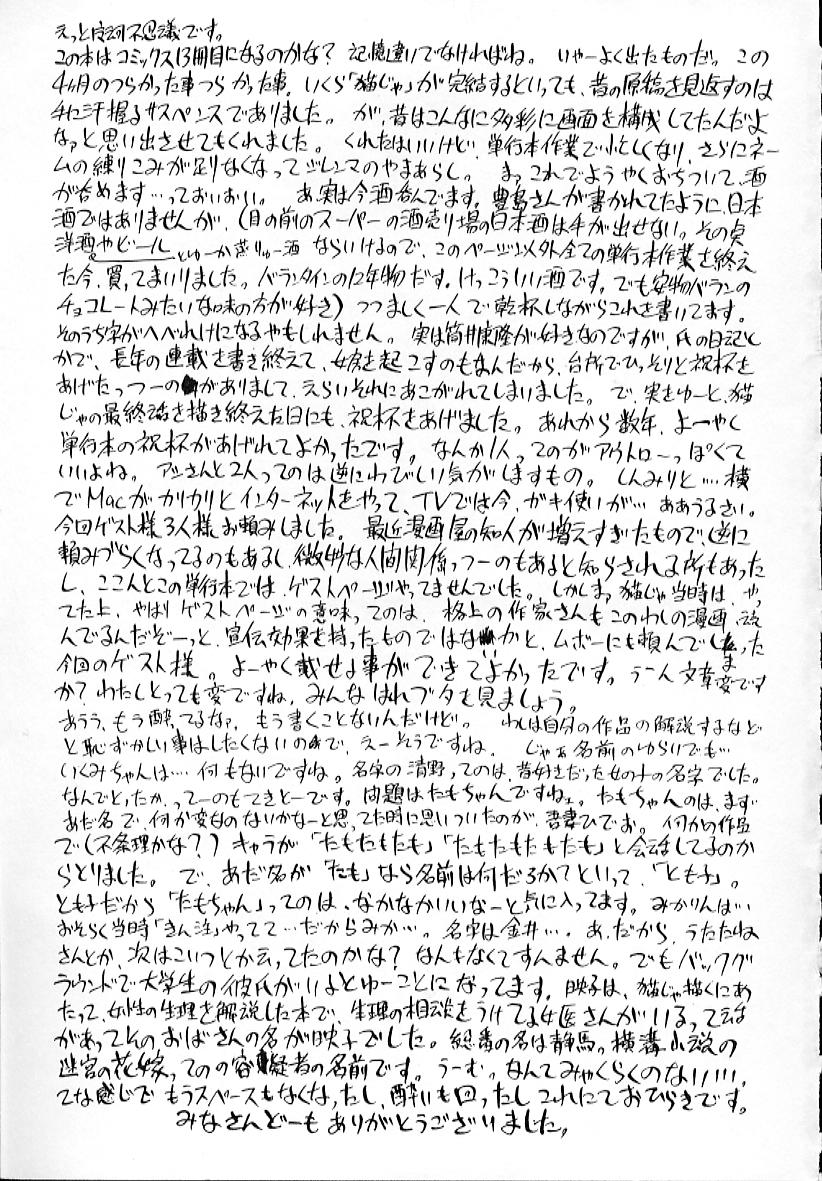 えっと唐沢不思議です。
この本はコミックス13冊目になるのかな? 記憶違いでなければね。 いやーよく出たものだ。 この
4ヶ月のつらかった事つらかった事。いくら「猫じゃ」が完結するといっても、昔の原稿を見返すのは
手に汗握るサスペンスでありました。 が、昔はこんなに多彩に画面を構成してたんだよ
なァと思い出させてもくれました。 くれたはいいけど、単行本作業で忙しくなり、さらにネー
ムの練りこみが足りなくなってジレンマのやまあらし。 まっこれでようやくおちついて、酒
が呑めます…っておいおい。 あ、実は今酒呑んでます。豊島さんが書かれてたように、日本
酒ではありませんが、(目の前のスーパーの酒売り場の日本酒は手が出せない。その点
洋酒やビールとゆーか蒸りゅー酒ならいけるので、このページ以外全ての単行本作業を終え
た今、買ってまいりました。バランタインの12年物だす。けっこういい酒です。でも安物バランの
チョコレートみたいな味の方が好き) つつましく一人で乾杯しながらこれを書いてます。
そのうち字がへべれけになるやもしれません。 実は筒井康隆が好きなのですが、氏の日記と
かで、長年の連載を書き終えて、女房を起こすのもなんだから、台所でひっそりと祝杯を
あげたっつーのがありまして、えらいそれにあこがれてしまいました。 で、実をゆーと、猫
じゃの最終話を描き終えた日にも、祝杯をあげました。 あれから数年、よーやく
単行本の祝杯があげれてよかったです。なんか1人ってのがアウトローっぽくて
いいよね。 アシさんと2人ってのは逆にわびしい気がしますもの。 しんみりと…。横
でMacがカリカリとインターネットをやって、TVでは今、ガキ使いが… ああうるさい。
今回ゲスト様3人様お頼みしました。 最近漫画屋の知人が増えすぎたもので、逆に
頼みづらくなってるのもあるし、微妙な人間関係っつーのもあると知らされる所もあった
し、ここんとこの単行本では、ゲストページやってませんでした。しかしまっ猫じゃ当時は、やっ
てた上、やはりゲストページの意味ってのは、格上の作家さんもこのわしの漫画、読
んでるんだぞーっと、宣伝効果を持ったものではないかと、ムボーにも頼んでしまった
今回のゲスト様。よーやく載せる事ができてよかったです。 うーん文章変です
か? わたしとっても変ですね、みんなはれブタも見ましょう。
あうう、もう酔ってるなァ、もう書くことないんだけど。 わしは自分の作品の解説するなど
と恥ずかしい事はしたくないので、えーそうですね。 じゃぁ名前のゆらいでも…
いくみちゃんは… 何もないですね。名字の清野ってのは、昔好きだった女の子の名字でした。
なんでとったか、ってーのもてきとーです。問題はたもちゃんですねェ。たもちゃんのは、まず
あだ名で、何か変なのないかなーと思ってた時に思いついたのが、吾妻ひでお。何かの作品
で(不条理かな?) キャラが「たもたもたも」「たもたもたもたも」と会話してるのか
らとりました。 で、あだ名が「たも」なら名前は何だろか?といって、「とも子」。
とも子だから「たもちゃん」ってのは、なかなかいいなーと気に入ってます。みかりんは…
おそらく当時「きん注」やってて…だからみか…。名字は金井…。あ、だから、うたたね
さんとか、次はこいつとか云ってたのかな? なんもなくてすんません。でもバックグ
ラウンドで大学生の彼氏がいるとゆーことになってます。映子は、猫じゃ描くにあ
たって、女性の生理を解説した本で、生理の相談をうけてる女医さんがいるって話
があってそのおばさんの名が映子でした。総番の名は静馬。横溝小説の
迷宮の花嫁ってのの容疑者の名前です。うーむ。なんてみゃくらくのない…。
てな感じで もうスペースもなくなったし、酔いも回ったし これにておひらきです。
みなさんどーも ありがとうございました。